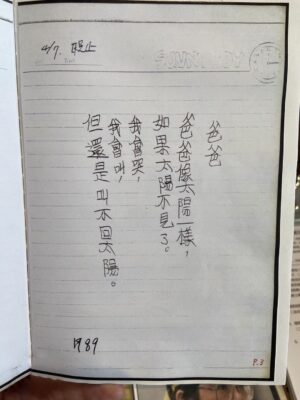 4/7.
爸爸
爸爸像太陽一樣，
如果太陽不見了。
我會哭，
我會叫，
但還是叫不回太陽。
1989
P.3